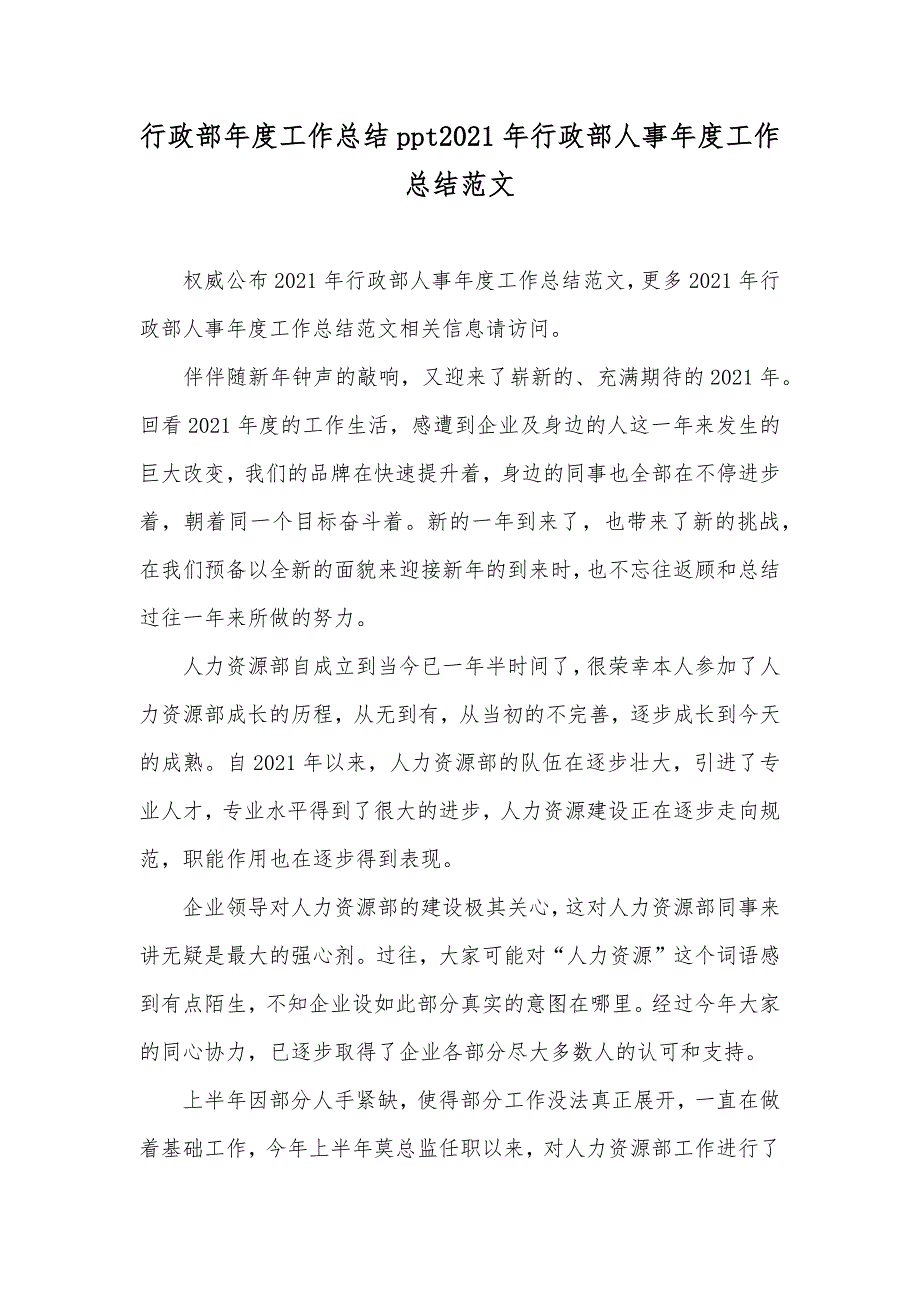 行政部年度工作总结ppt2021年行政部人事年度工作
总结范文
权威公布2021年行政部人事年度工作总结范文,更多2021年行
政部人事年度工作总结范文相关信息请访问。
伴伴随新年钟声的敲响，又迎来了崭新的、充满期待的2021年。
回看2021年度的工作生活，感遭到企业及身边的人这一年来发生的
巨大改变，我们的品牌在快速提升着，身边的同事也全部在不停进步
着，朝着同一个目标奋斗着。新的一年到来了，也带来了新的挑战，
在我们预备以全新的面貌来迎接新年的到来时，也不忘往返顾和总结
过往一年来所做的努力。
人力资源部自成立到当今已一年半时间了，很荣幸本人参加了人
力资源部成长的历程，从无到有，从当初的不完善，逐步成长到今天
的成熟。自2021年以来，人力资源部的队伍在逐步壮大，引进了专
业人才，专业水平得到了很大的进步，人力资源建设正在逐步走向规
范，职能作用也在逐步得到表现。
企业领导对人力资源部的建设极其关心，这对人力资源部同事来
讲无疑是最大的强心剂。过往，大家可能对“人力资源”这个词语感
到有点陌生，不知企业设如此部分真实的意图在哪里。经过今年大家
的同心协力，已逐步取得了企业各部分尽大多数人的认可和支持。
上半年因部分人手紧缺，使得部分工作没法真正展开，一直在做
着基础工作，今年上半年莫总监任职以来，对人力资源部工作进行了